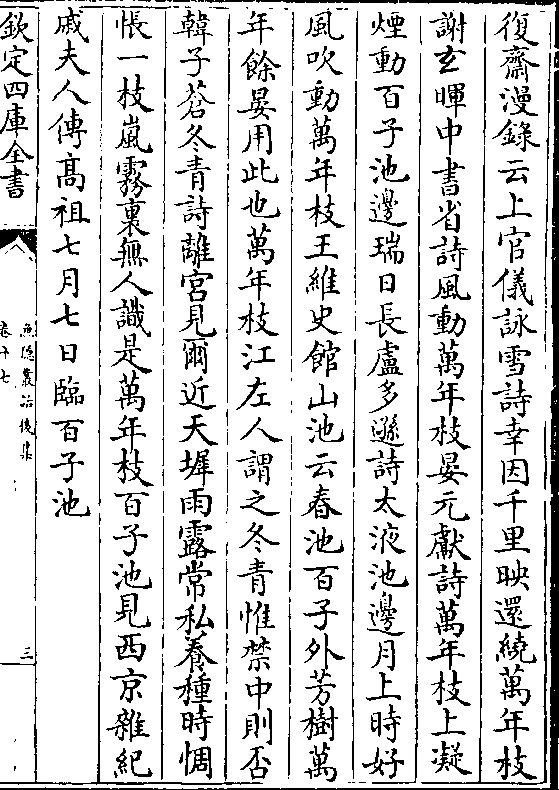 復齋漫錄云上官儀詠雪詩幸因千里映還繞萬年枝
謝玄暉中書省詩風動萬年枝晏元獻詩萬年枝上凝
煙動百子池邊瑞日長盧多遜詩太液池邊月上時好
風吹動萬年枝王維史館山池云春池百子外芳樹萬
年餘晏用此也萬年枝江左人謂之冬青惟禁中則否
韓子蒼冬青詩離宮見爾近天墀雨露常私養種時惆
悵一枝嵐霧裏無人識是萬年枝百子池見西京雜紀
戚夫人傳高祖七月七日臨百子池
欽定四庫全書
漁隱叢話後集
卷十七
三